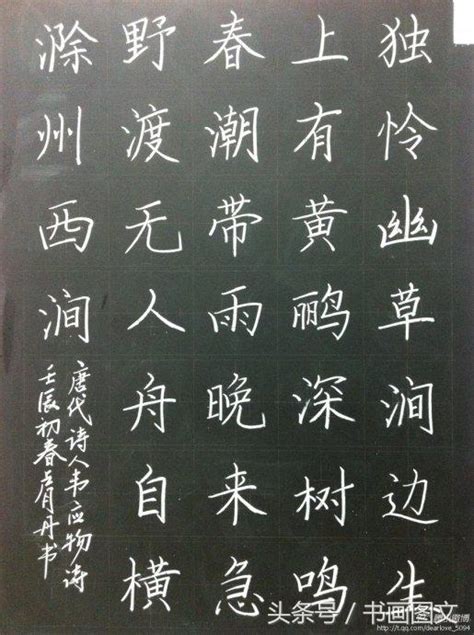 独怜幽草涧边生
上有黄鹂深树鸣
春潮带雨晚来急
野渡无人舟自横
滁州西涧
唐代诗人韦应物诗
壬辰初春丹书
头条号/书画图文
http://t.qq.com/dearlove_5094